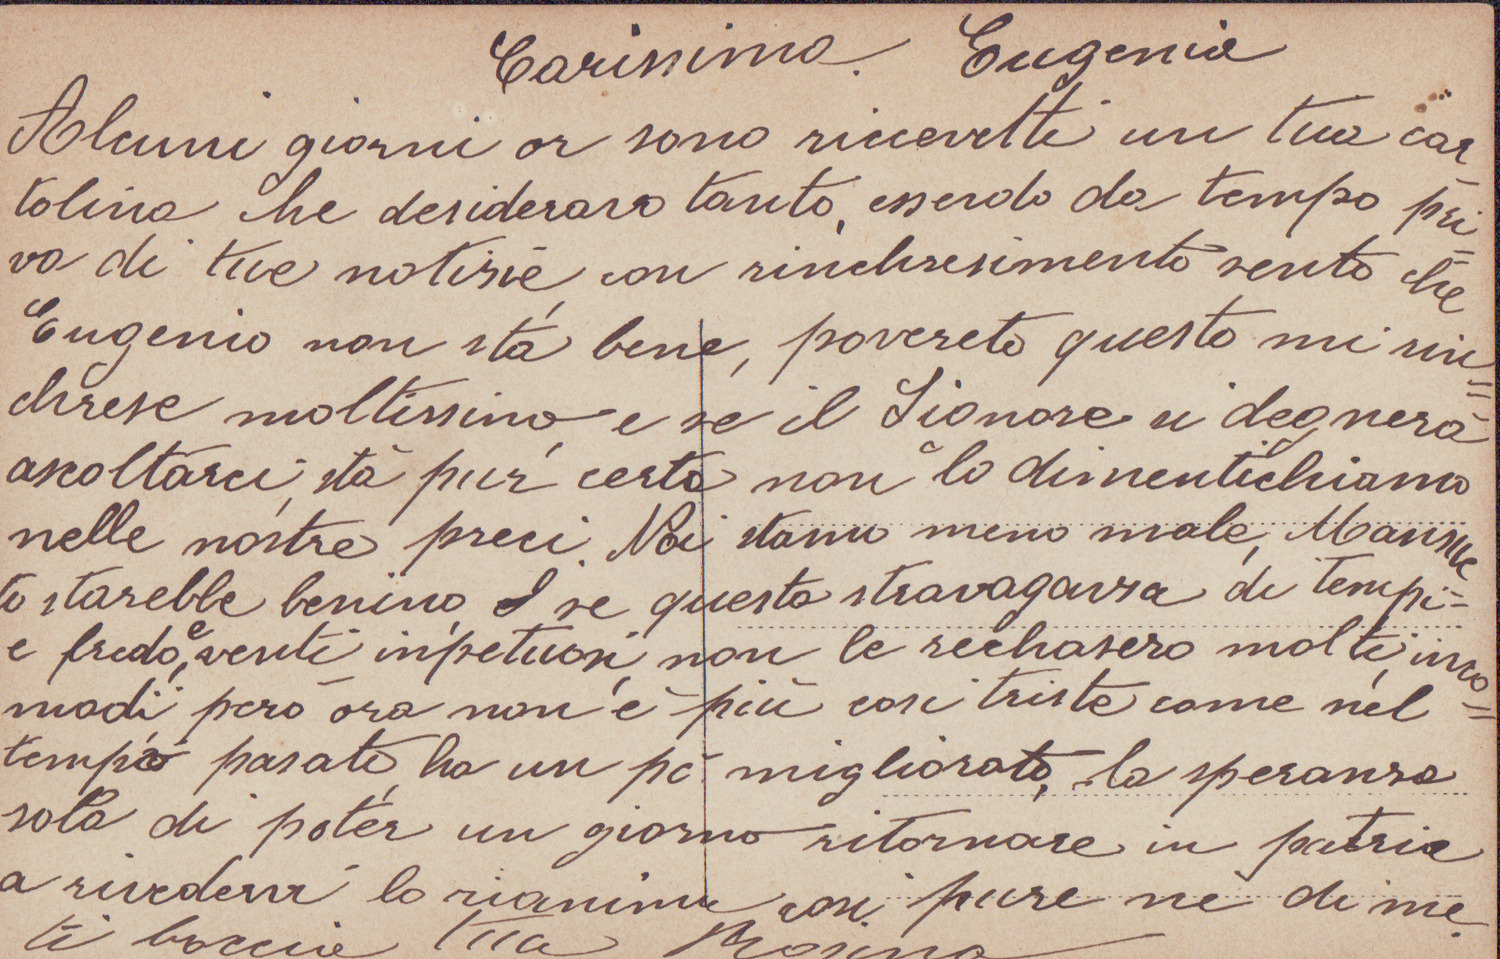 Carissima Eugenia
Alcuni giorni or sono riccevetti un tua car-
tolina che desideravo tanto, essendo da tempo pri=
va di tue notizie, con rinchresimento sento che
Eugenio non stà bene, povereto questo mi rin=
chrese moltissimo e se il Signore si degnerà
ascoltarci, stà pur certa non lo dimentichiamo
nelle nostre preci. Noi stamo meno male,
to starebbe benino, se questa stravaganza di tempi=
e fredo, e venti inpetuosi, non le rechasero molti, inco=
modi, però ora non è più cosi triste come nel
tempo pasato, ha un pò migliorato, la speranza
sola di poter un giorno ritornare in patria
a rivedervi lo rianima, cosi pure nè di me.
ti baccia tua Rosina